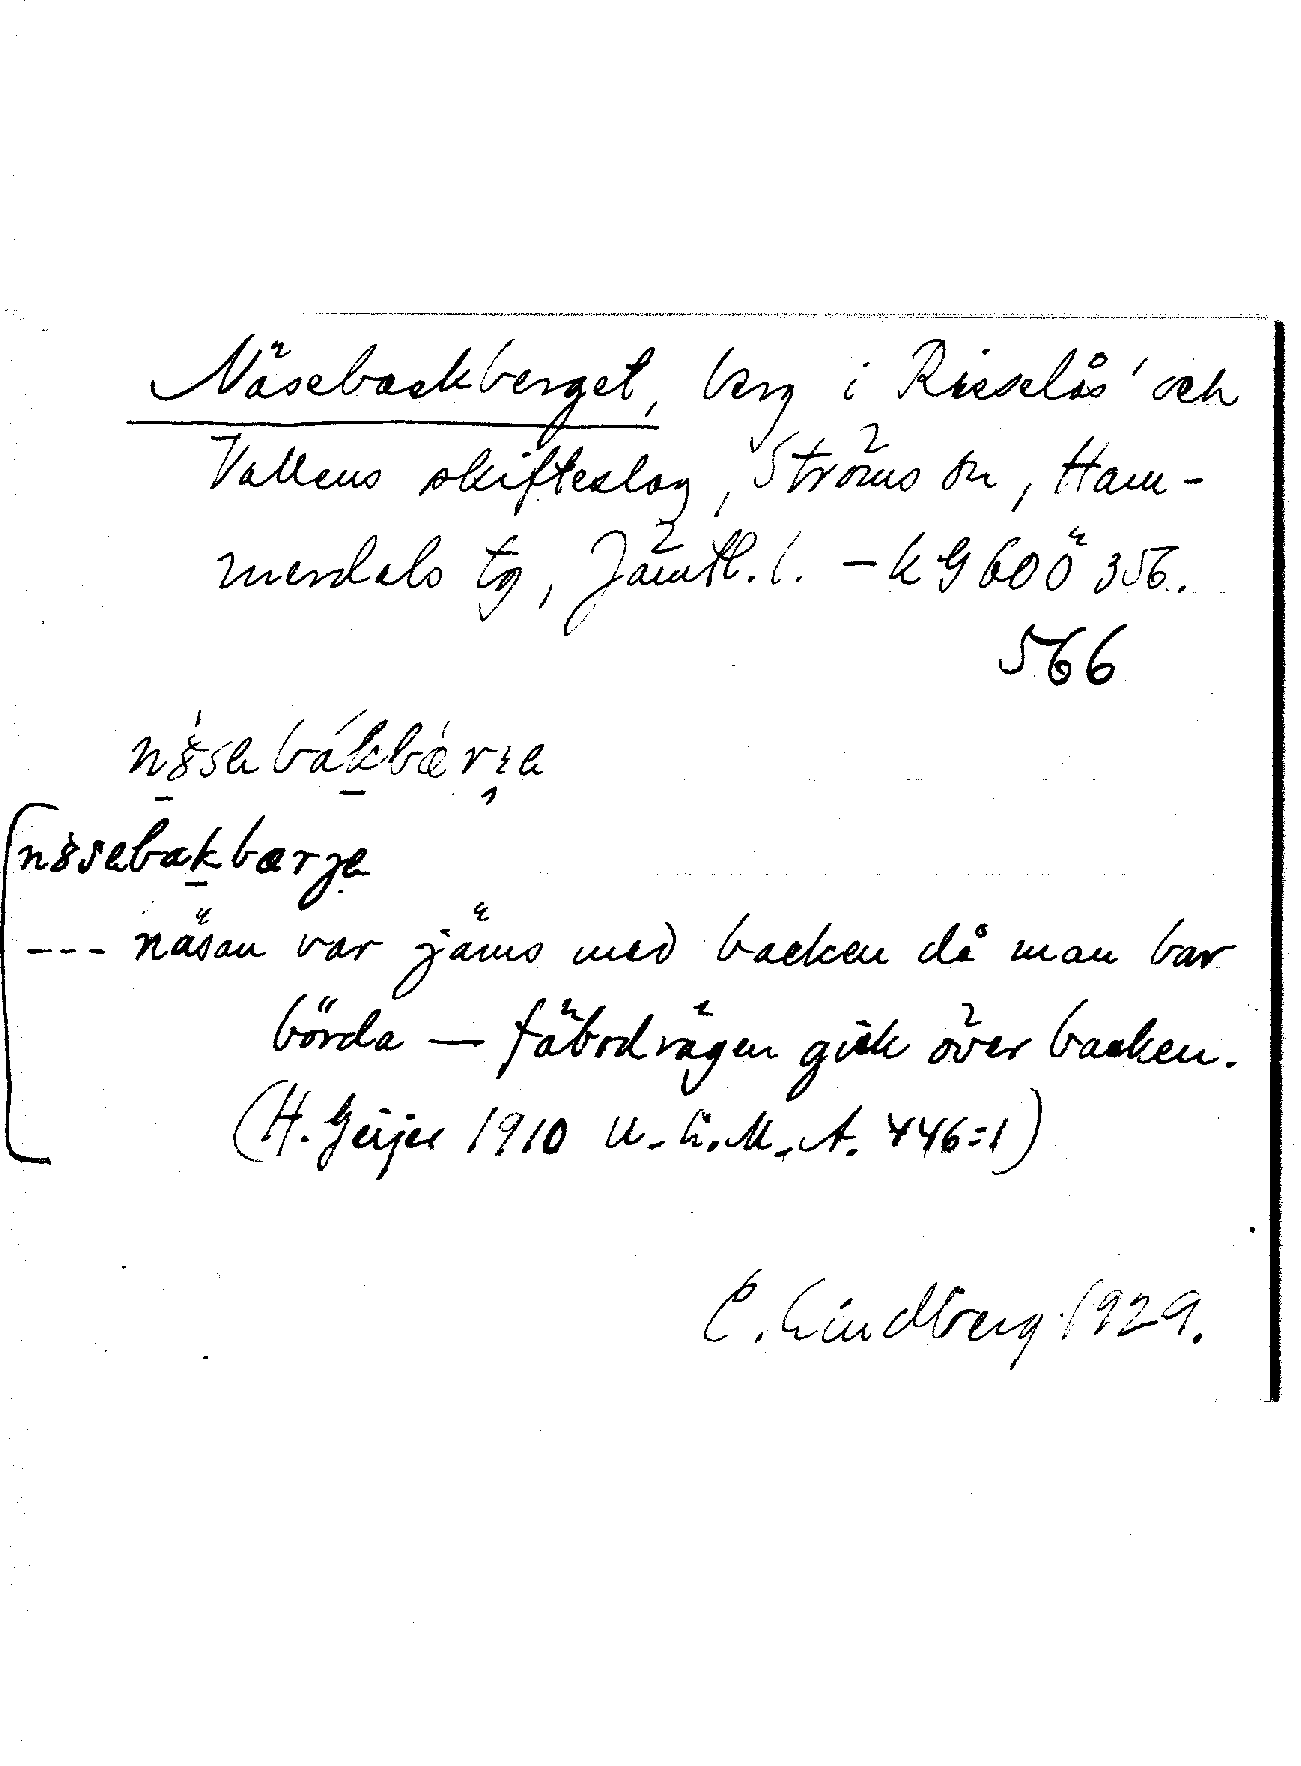 Näsebackberget, berg i Risselås' och
Vallens skifteslag, Ströms sn, Ham-
merdals tg, Jämtl. l. - k G 60 Ö 356.
566
n8̀seba̍kbærje
n8̀sebakbærje
--- näsan var jäms med backen då man bar
börda — fäbodvägen gick över backen.
(H. Geijer 1910 U.L.M.A. 446:1)
C. Lindberg 1929.